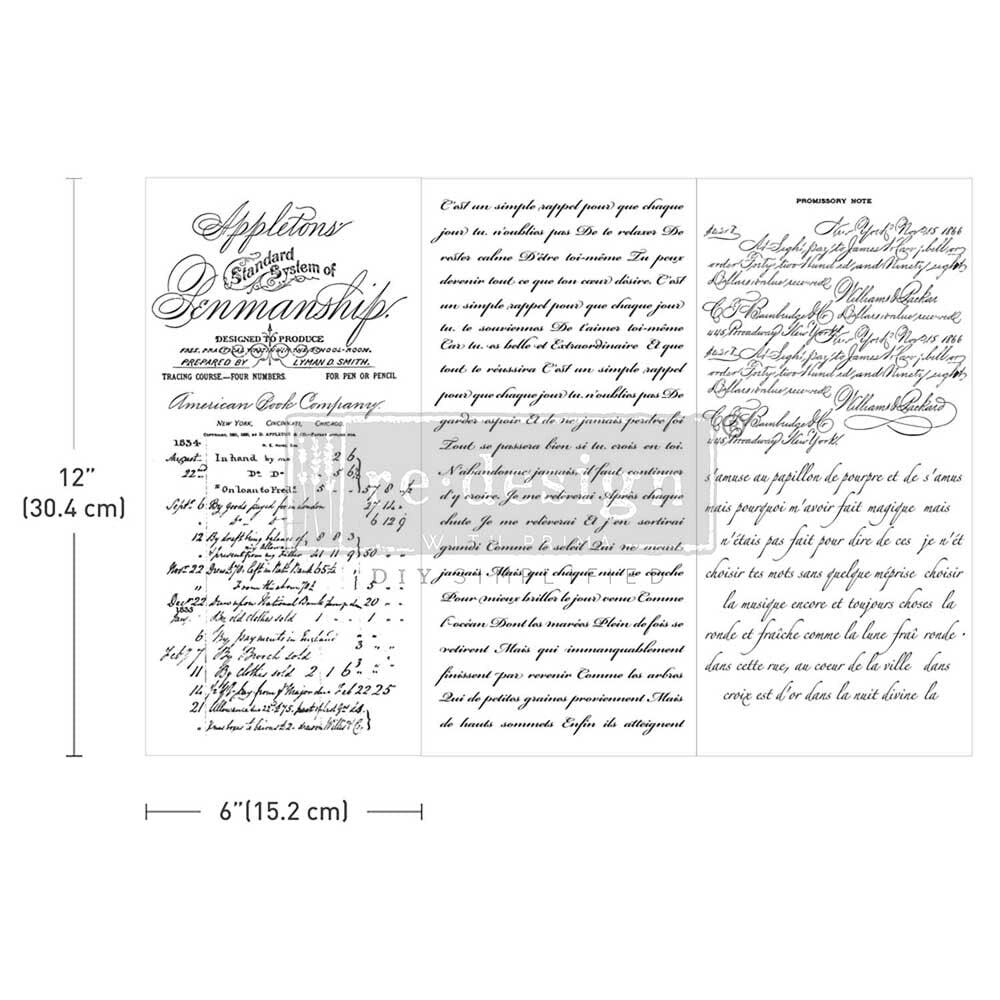 12"
(30.4 cm)
6"(15.2 cm)
Appletons'
Standard
System of
Penmanship.
DESIGNED TO PRODUCE
PREPARED BY LYMAN D. SMITH.
TRACING COURSE.—FOUR NUMBERS. FOR PEN OR PENCIL
American Book Company.
NEW YORK, CINCINNATI, CHICAGO.
1834
August In hand by me 2 6
22 Do Do 5 6
"On loan to Fred 5 57 8
Sept 6 By goods payed for in London 27 14
6 12 9
12 By draft being balance of 8 8 3
11 9 50
Nov 22
5
Decr 22 Drawn upon National Bank 20
1835
Jany By old clothes sold 1 1
6 By payments in England 3
Feby 7 By Brooch sold 3
11 By clothes sold 2 1 6
14 Feb 22 25
21
C'est un simple rappel pour que chaque
jour tu n'oublies pas De te relaxer De
rester calme D'être toi-même Tu peux
devenir tout ce que ton cœur désire. C'est
un simple rappel pour que chaque jour
tu te souviennes De t'aimer toi-même
Car tu es belle et Extraordinaire Et que
tout te réussira C'est un simple rappel
pour que chaque jour tu n'oublies pas De
garder espoir Et de ne jamais perdre foi
Tout se passera bien si tu crois en toi.
N'abandonne jamais, il faut continuer
d'y croire. Je me relèverai Après chaque
chute Je me relèverai Et j'en sortirai
grandi Comme le soleil Qui ne meurt
jamais Mais qui chaque nuit se couche
Pour mieux briller le jour venu Comme
l'océan Dont les marées Plein de fois se
retirent Mais qui immanquablement
finissent par revenir Comme les arbres
Qui de petites graines proviennent Mais
de hauts sommets Enfin ils atteignent
PROMISSORY NOTE
New York Nov 15 1866
At Sight, pay to James W Carr, bill or
order Forty two Hundred, and Ninety eight
Dollars value received
Williams & Packar
C F Bainbridge & C Dollars value received
445, Broadway New York. New York Nov 15 1866
At Sight, pay to James W Carr, bill or
order Forty two Hundred, and Ninety eight
Dollars value received
Williams & Packard
C F Bainbridge & C
445, Broadway New York
s'amuse au papillon de pourpre et de s'amus
mais pourquoi m'avoir fait magique mais
n'étais pas fait pour dire de ces je n'ét
choisir tes mots sans quelque méprise choisir
la musique encore et toujours choses la
ronde et fraîche comme la lune fraî ronde
dans cette rue, au coeur de la ville dans
croix est d'or dans la nuit divine la
re·design
WITH PRIMA
DIY SIMPLIFIED